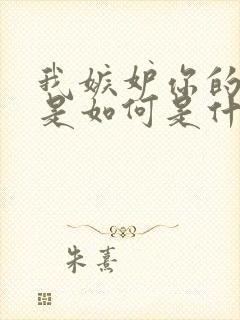 我嫉妒你的
是如何是什
朱熹